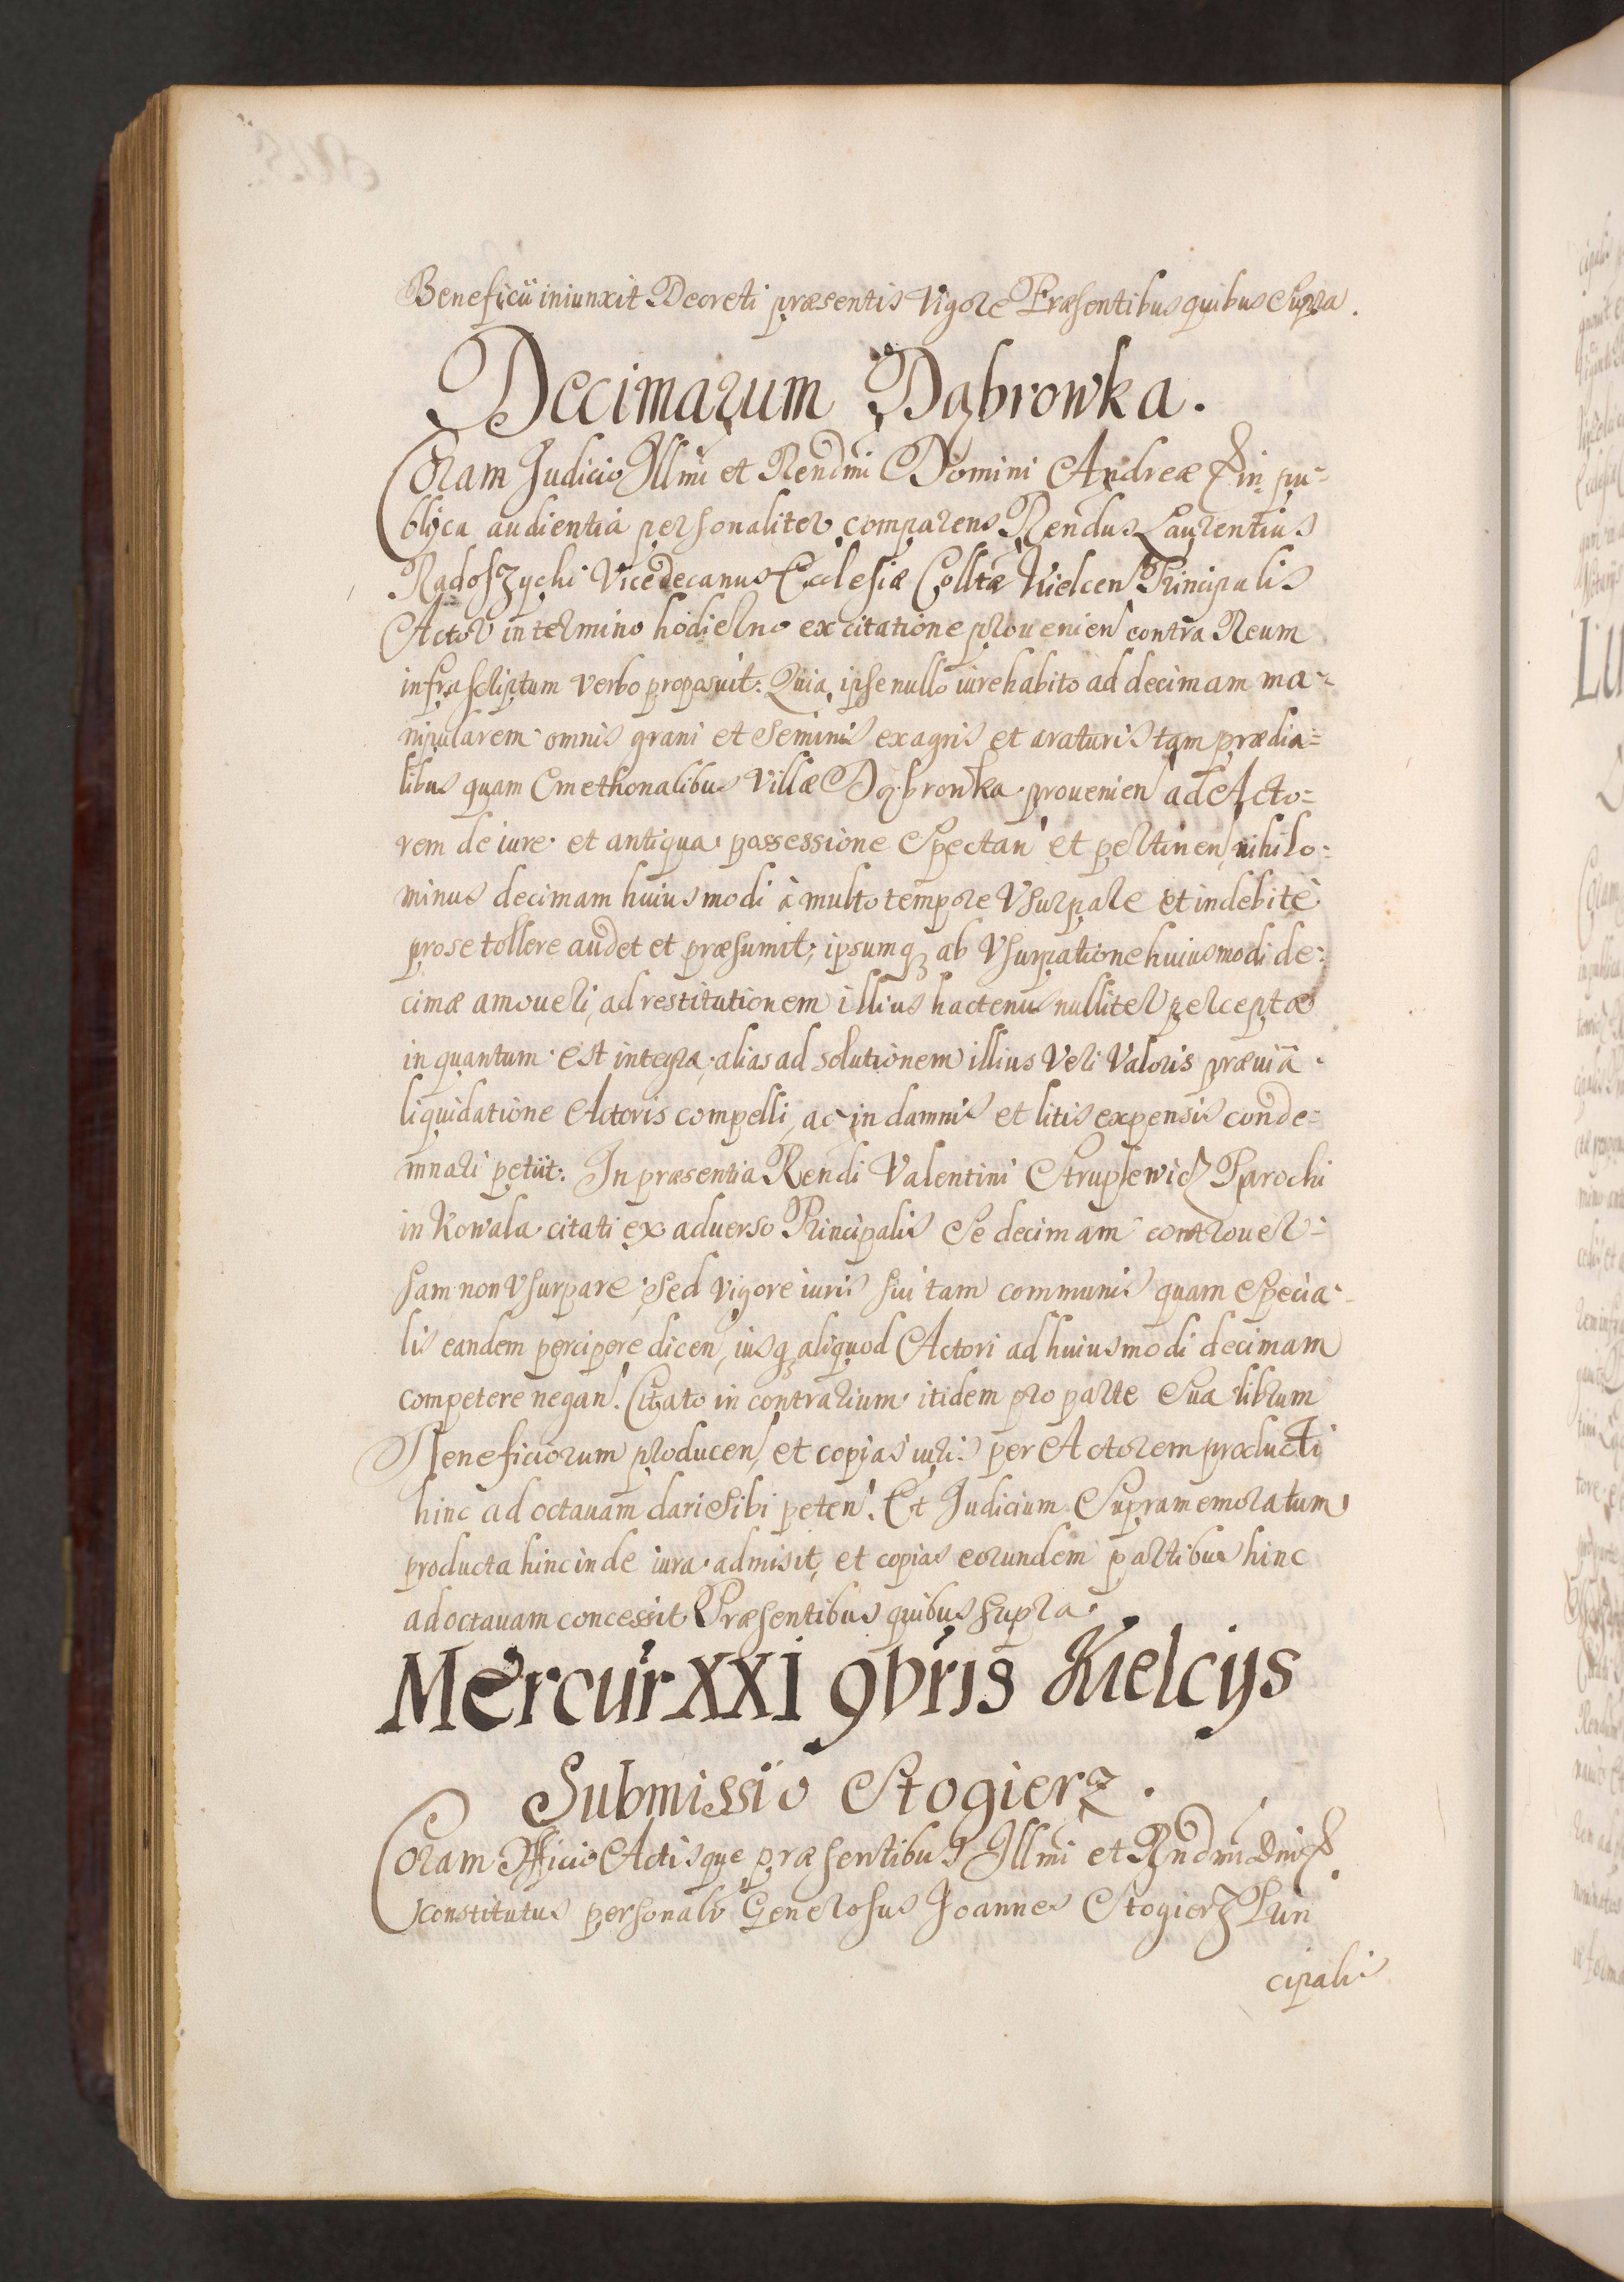 Beneficii iniunxit Decreti præsentis Vigore Præsentibus quibus Supra.
Decimarum Dąbrowka.
Coram Judicio Illmi et Rendmi Domini Andreæ & in pu-
blica audientia personaliter comparens Rendus Laurentius
Radoszycki Vicedecanus Ecclesiæ Colltæ Kielcen Principalis
Actor in termino hodierno ex citatione prouenien contra Reum
infrascriptum verbo proposuit: Quia ipse nullo iure habito ad decimam ma-
nipularem omnis grani et Seminis ex agris et araturis tam prædia=
libus quam Cmethonalibus Villæ Dąbrowka prouenien ad Acto=
rem de iure et antiqua possessione Spectan et pertinen, nihilo-
minus decimam huiusmodi à multo tempore Vsurpare et indebitè
pro se tollere audet et præsumit; ipsumq₃ ab Vsurpatione huiusmodi de-
cimæ amoueri, ad restitutionem illius hactenus nulliter perceptæ
in quantum est integra, alias ad solutionem illius Veri Valoris præuiâ
liquidatione Actoris compelli, ac in damnis et litis expensis conde-
mnari petiit: In præsentia Rendi Valentini Struplewicz Parochi
in Kowala citati ex aduerso Principalis Se decimam controuer-
sam non Vsurpare, sed Vigore iuris sui tam communis quam Specia-
lis eandem percipere dicen, iusq₃ aliquod Actori ad huiusmodi decimam
competere negan. Citato in contrarium itidem pro parte Sua librum
Beneficiorum producen, et copias iuris per Actorem producti
hinc ad octauam dari Sibi peten. Et Judicium Supramemoratum
producta hincinde iura admisit, et copias eorundem partibus hinc
ad octauam concessit Præsentibus quibus supra.
Mercur XXI 9bris Kielcijs
Submissio Stogierz.
Coram Officio Actisque præsentibus Illmi et Rndmi Dni &
constitutus personalr Generosus Joannes Stogierz Prin
cipalis